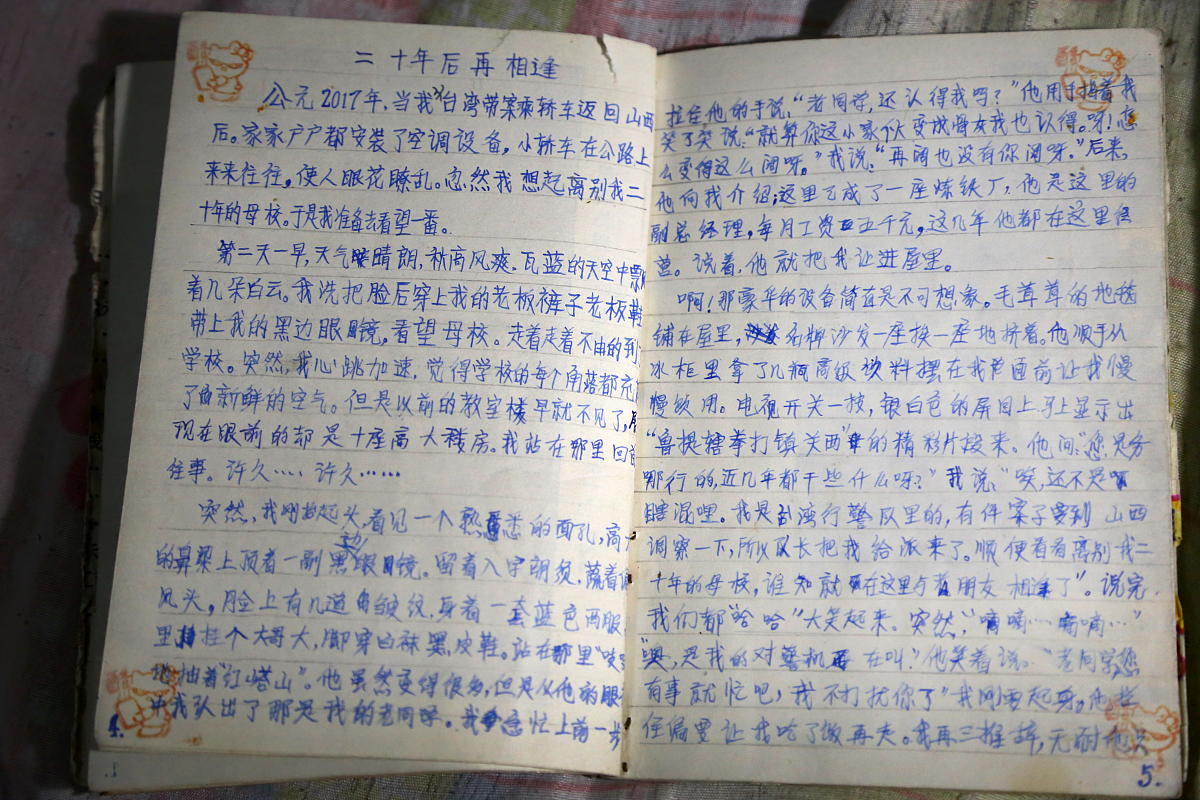 二十年后再相逢
公元2017年,当我从台湾带案乘轿车返回山西
后。家家户户都安装了空调设备,小轿车在公路上
来来往往。使人眼花瞭乱。忽然我想起离别我二
十年的母校。于是我准备去看望一番。
第二天一早,天气晴朗,秋高风爽,瓦蓝的天空中飘
着几朵白云。我洗把脸后穿上我的老板裤子老板鞋
带上我的黑边眼镜,看望母校。走着走着不由的到
学校。突然,我心跳加速,觉得学校的每个角落都充
了新鲜的空气。但是以前的教室楼早就不见了,
现在眼前的却是十座高大楼房。我站在那里回
往事。许久……许久……
突然,我刚抬起头,看见一个熟悉的面孔,高
的鼻梁上顶着一副黑边眼镜。留着八字胡须,
风头,脸上有几道皱纹,身着一套蓝色西服
里挂个大哥大,脚穿白袜黑皮鞋。站在那里
地抽着"红塔山"。他虽然变得很多,但是从他的眼
中我认出了那是我的老同学。我急忙上前一步
4.
拉住他的手说:"老同学,还认得我吗?"他用手指着我
笑了笑说:"就算你这小家伙变成我也认得。呀!怎
么变得这么阔呀。"我说:"再阔也没有你阔呀。"后来,
他向我介绍:这里已成了一座炼铁厂,他是这里的
副总经理,每月工资五千元,这几年他都在这里
。说着,他就把我让进屋里。
啊!那豪华的设备简直是不可想象。毛茸茸的地毯
铺在屋里,名牌沙发一座挨一座地挤着。他顺手从
冰柜里拿了几瓶高级饮料摆在我面前让我慢
慢饮用。电视开关一按,银白色的屏目上马上显示出
"鲁提辖拳打镇关西"的精彩片段来。他问:"您是务
哪行的,近几年都干些什么呀?"我说:"唉,还不是
瞎混哩。我是台湾行警队里的,有件案子要到山西
调察一下,所以队长把我给派来了。顺便看看离别我二
十年的母校,谁知就在这里与老朋友相逢了"。说完
我们都"哈哈"大笑起来。突然,"嘀嘀…嘀嘀…"
"噢,是我的对警机在叫。"他笑着说。"老同学您
有事就忙吧,我不打扰你了"我刚要起身,他拦
住偏要让我吃了饭再走。我再三推辞,无耐他只
5.